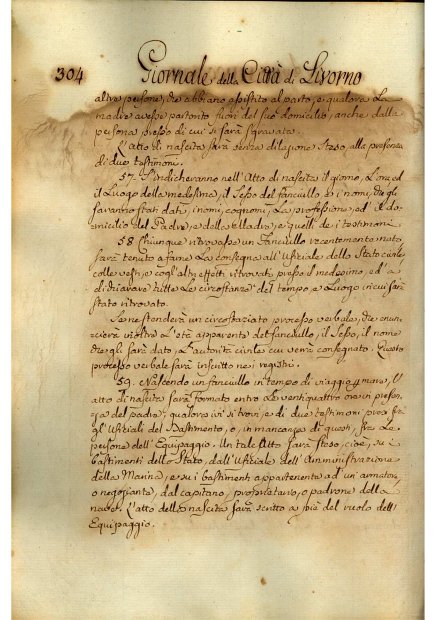 304 Giornale della Città di Livorno
altre persone, che abbiano assistito al parto, e qualora La
madre avesse partorito fuori del suo domicilio, anche dalla
persona presso di cui si sarà sgravata.
L'atto di nascita sarà senza dilazione steso, alla presenza
di due testimoni.
57. S'indicheranno nell'Atto di nascita il giorno, L'ora ed
il Luogo della medesima, il sesso del fanciullo e i nomi, che gli
saranno stati dati, i nomi, cognomi, La professione, ed il do-
micilio del Padre, e della Madre, e quelli de i testimoni.
58 Chiunque ritrovasse un Fanciullo recentemente nato,
sarà tenuto a farne La consegna all'Ufiziale dello Stato civile,
colle vesti, e cogl'altri effetti ritrovati presso il medesimo, ed a
dichiarare tutte Le circostanze del tempo, e Luogo in cui sarà
stato ritrovato.
Se ne stenderà un circostanziato processo verbale, che enun-
cierà inoltre L'età apparente del fanciullo, il sesso, il nome
che gli sarà dato, L'autorità civile cui verrà consegnato. Questo
processo verbale sarà inscritto nei registri.
59. Nascendo un fanciullo in tempo di viaggio mare, L'
atto di nascita sarà formato entro Le ventiquattro ore in presen-
za del padre, qualora ivi si trovi, e di due testimoni presi fra
gl'Ufiziali del Bastimento, o, in mancanza di questi, fra Le
persone dell'Equipaggio. Un tale Atto sarà steso, cioè, su i
bastimenti dello Stato, dall'Ufiziale dell'Amministrazione
della Marina, e su i bastimenti appartenenti ad un armatore,
o negoziante, dal capitano, proprietario, o padrone della
nave. L'atto della nascita sarà scritto a piè del ruolo dell'
Equipaggio.